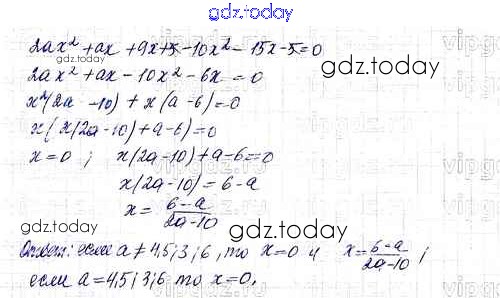 gdz.today
2ax² + ax + 9x + 5 - 10x² - 15x - 5 = 0
gdz.today
2ax² + ax - 10x² - 6x = 0
x²(2a - 10) + x(a - 6) = 0
gdz.today
x(x(2a - 10) + a - 6) = 0
x = 0 ; x(2a - 10) + a - 6 = 0
x(2a - 10) = 6 - a
x = (6 - a)/(2a - 10)
gdz.today
gdz.today
Ответ: если a ≠ 4,5; 3; 6, то x = 0 и x = (6 - a)/(2a - 10) ;
если a = 4,5; 3; 6 то x = 0.
gdz.today